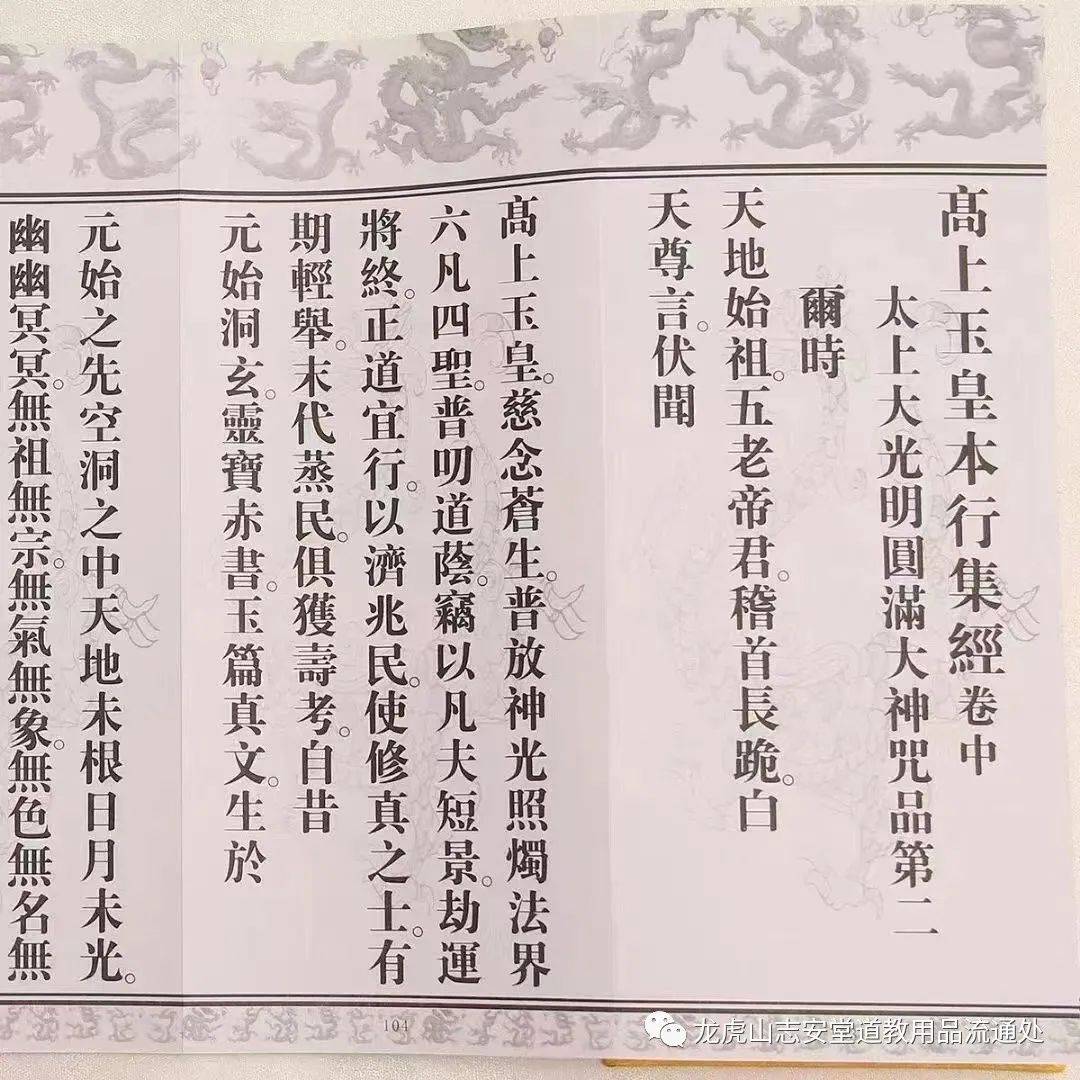 髙上玉皇本行集經卷中
太上大光明圓滿大神咒品第二
爾時
天地始祖。五老帝君。稽首長跪。白
天尊言。伏聞
髙上玉皇。慈念蒼生。普放神光照燭法界
六凡四聖。普叨道蔭。竊以凡夫短景。劫運
將終。正道宜行。以濟兆民。使修真之士。有
期輕舉。末代蒸民。俱獲壽考。自昔
元始洞玄。靈寶赤書。玉篇真文。生於
元始之先空洞之中天地未根日月未光。
幽幽冥冥。無祖無宗。無氣無象。無色無名無
104
龙虎山志安堂道教用品流通处